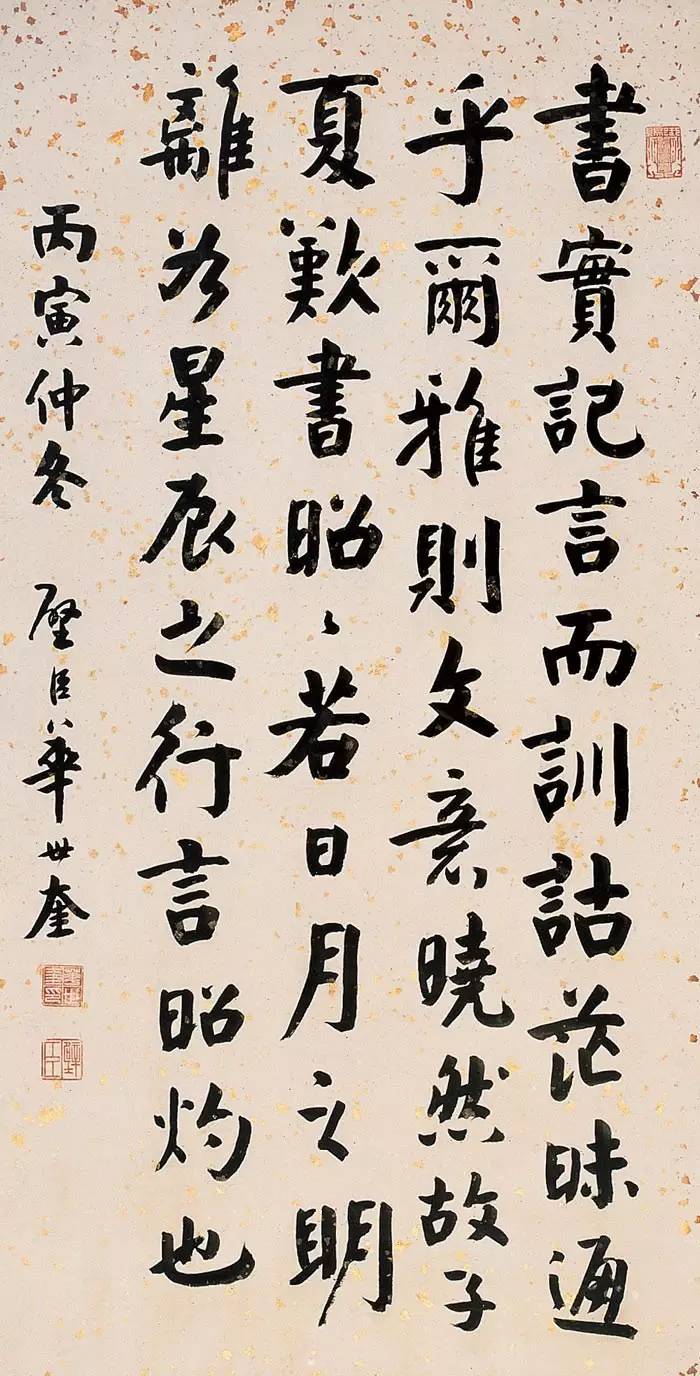 書實記言而訓詁茫昧通
乎爾雅則文意曉然故子
夏歎書昭〻若日月之明
離為星辰之行言昭灼也
丙寅仲冬 璧臣華世奎